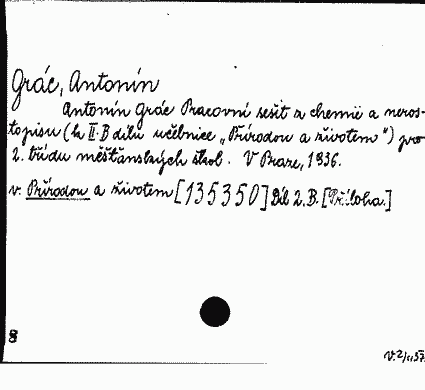 Grác, Antonín
Antonín Grác Pracovní sešit z chemie a neros-
topisu (k II. B dílu učebnice „Přírodou a životem") pro
2. třídu měšťanských škol. V Praze, 1936.
v. Přírodou a životem [135350] Díl 2. B. [Příloha.]
8